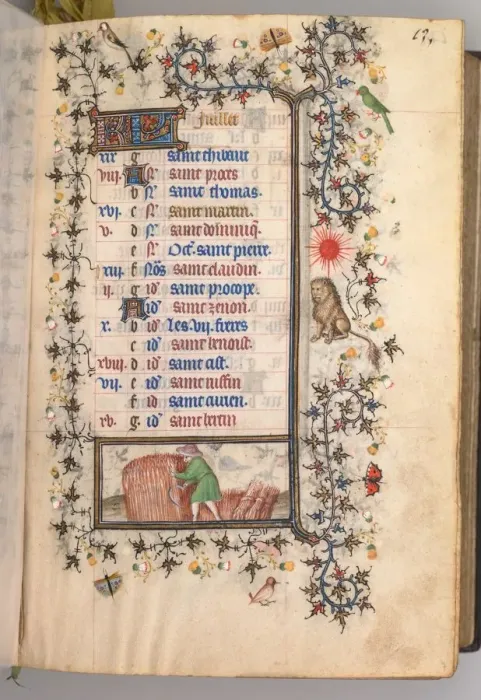 Juillet
xix g saint thibaut
viii. A N͛ saint proces
b N͛ saint thomas.
xvi. c N͛ saint martin.
v. d N͛ saint dominiq̃.
e N͛ Oct̃. saint pierre.
xiii f Nõs saint claudin.
ii. g id᷑ saint procope.
A id᷑ saint zenon.
x. b id᷑ Les .vii. freres
c id᷑ saint benoist.
xviii. d id᷑ saint cist.
vii. e id᷑ saint ruffin
f id᷑ saint
xv. g id᷑ saint bertin